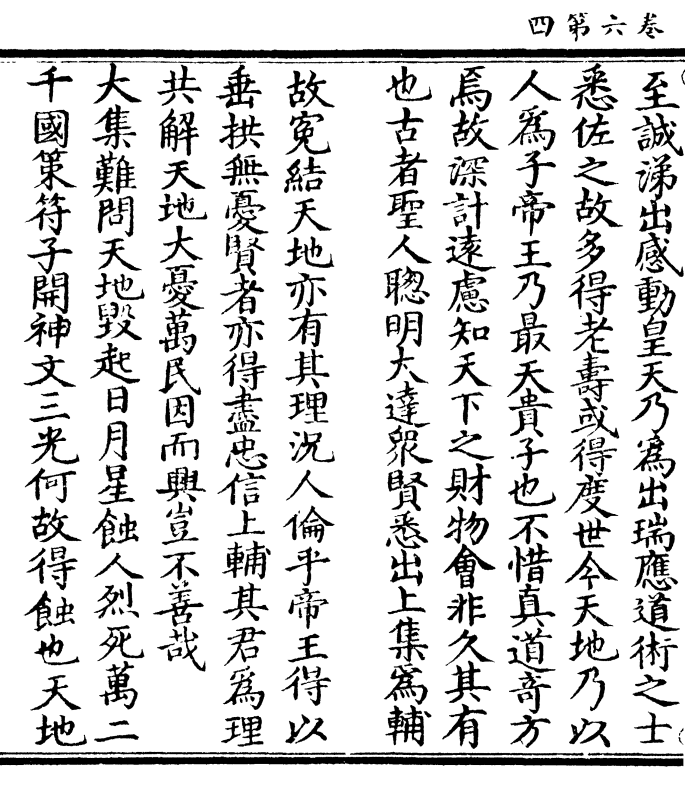 卷六第四
至誠涕出感動皇天乃爲出瑞應道術之士
悉佐之故多得老壽或得度世今天地乃以
人爲子帝王乃最天貴子也不惜真道奇方
焉故深計遠慮知天下之財物會非久其有
也古者聖人聰明大達衆賢悉出上集爲輔
故寃結天地亦有其理況人倫乎帝王得以
垂拱無憂賢者亦得盡忠信上輔其君爲理
共解天地大憂萬民因而興豈不善哉
大集難問天地毀起日月星蝕人烈死萬二
千國策符子開神文三光何故得蝕也天地